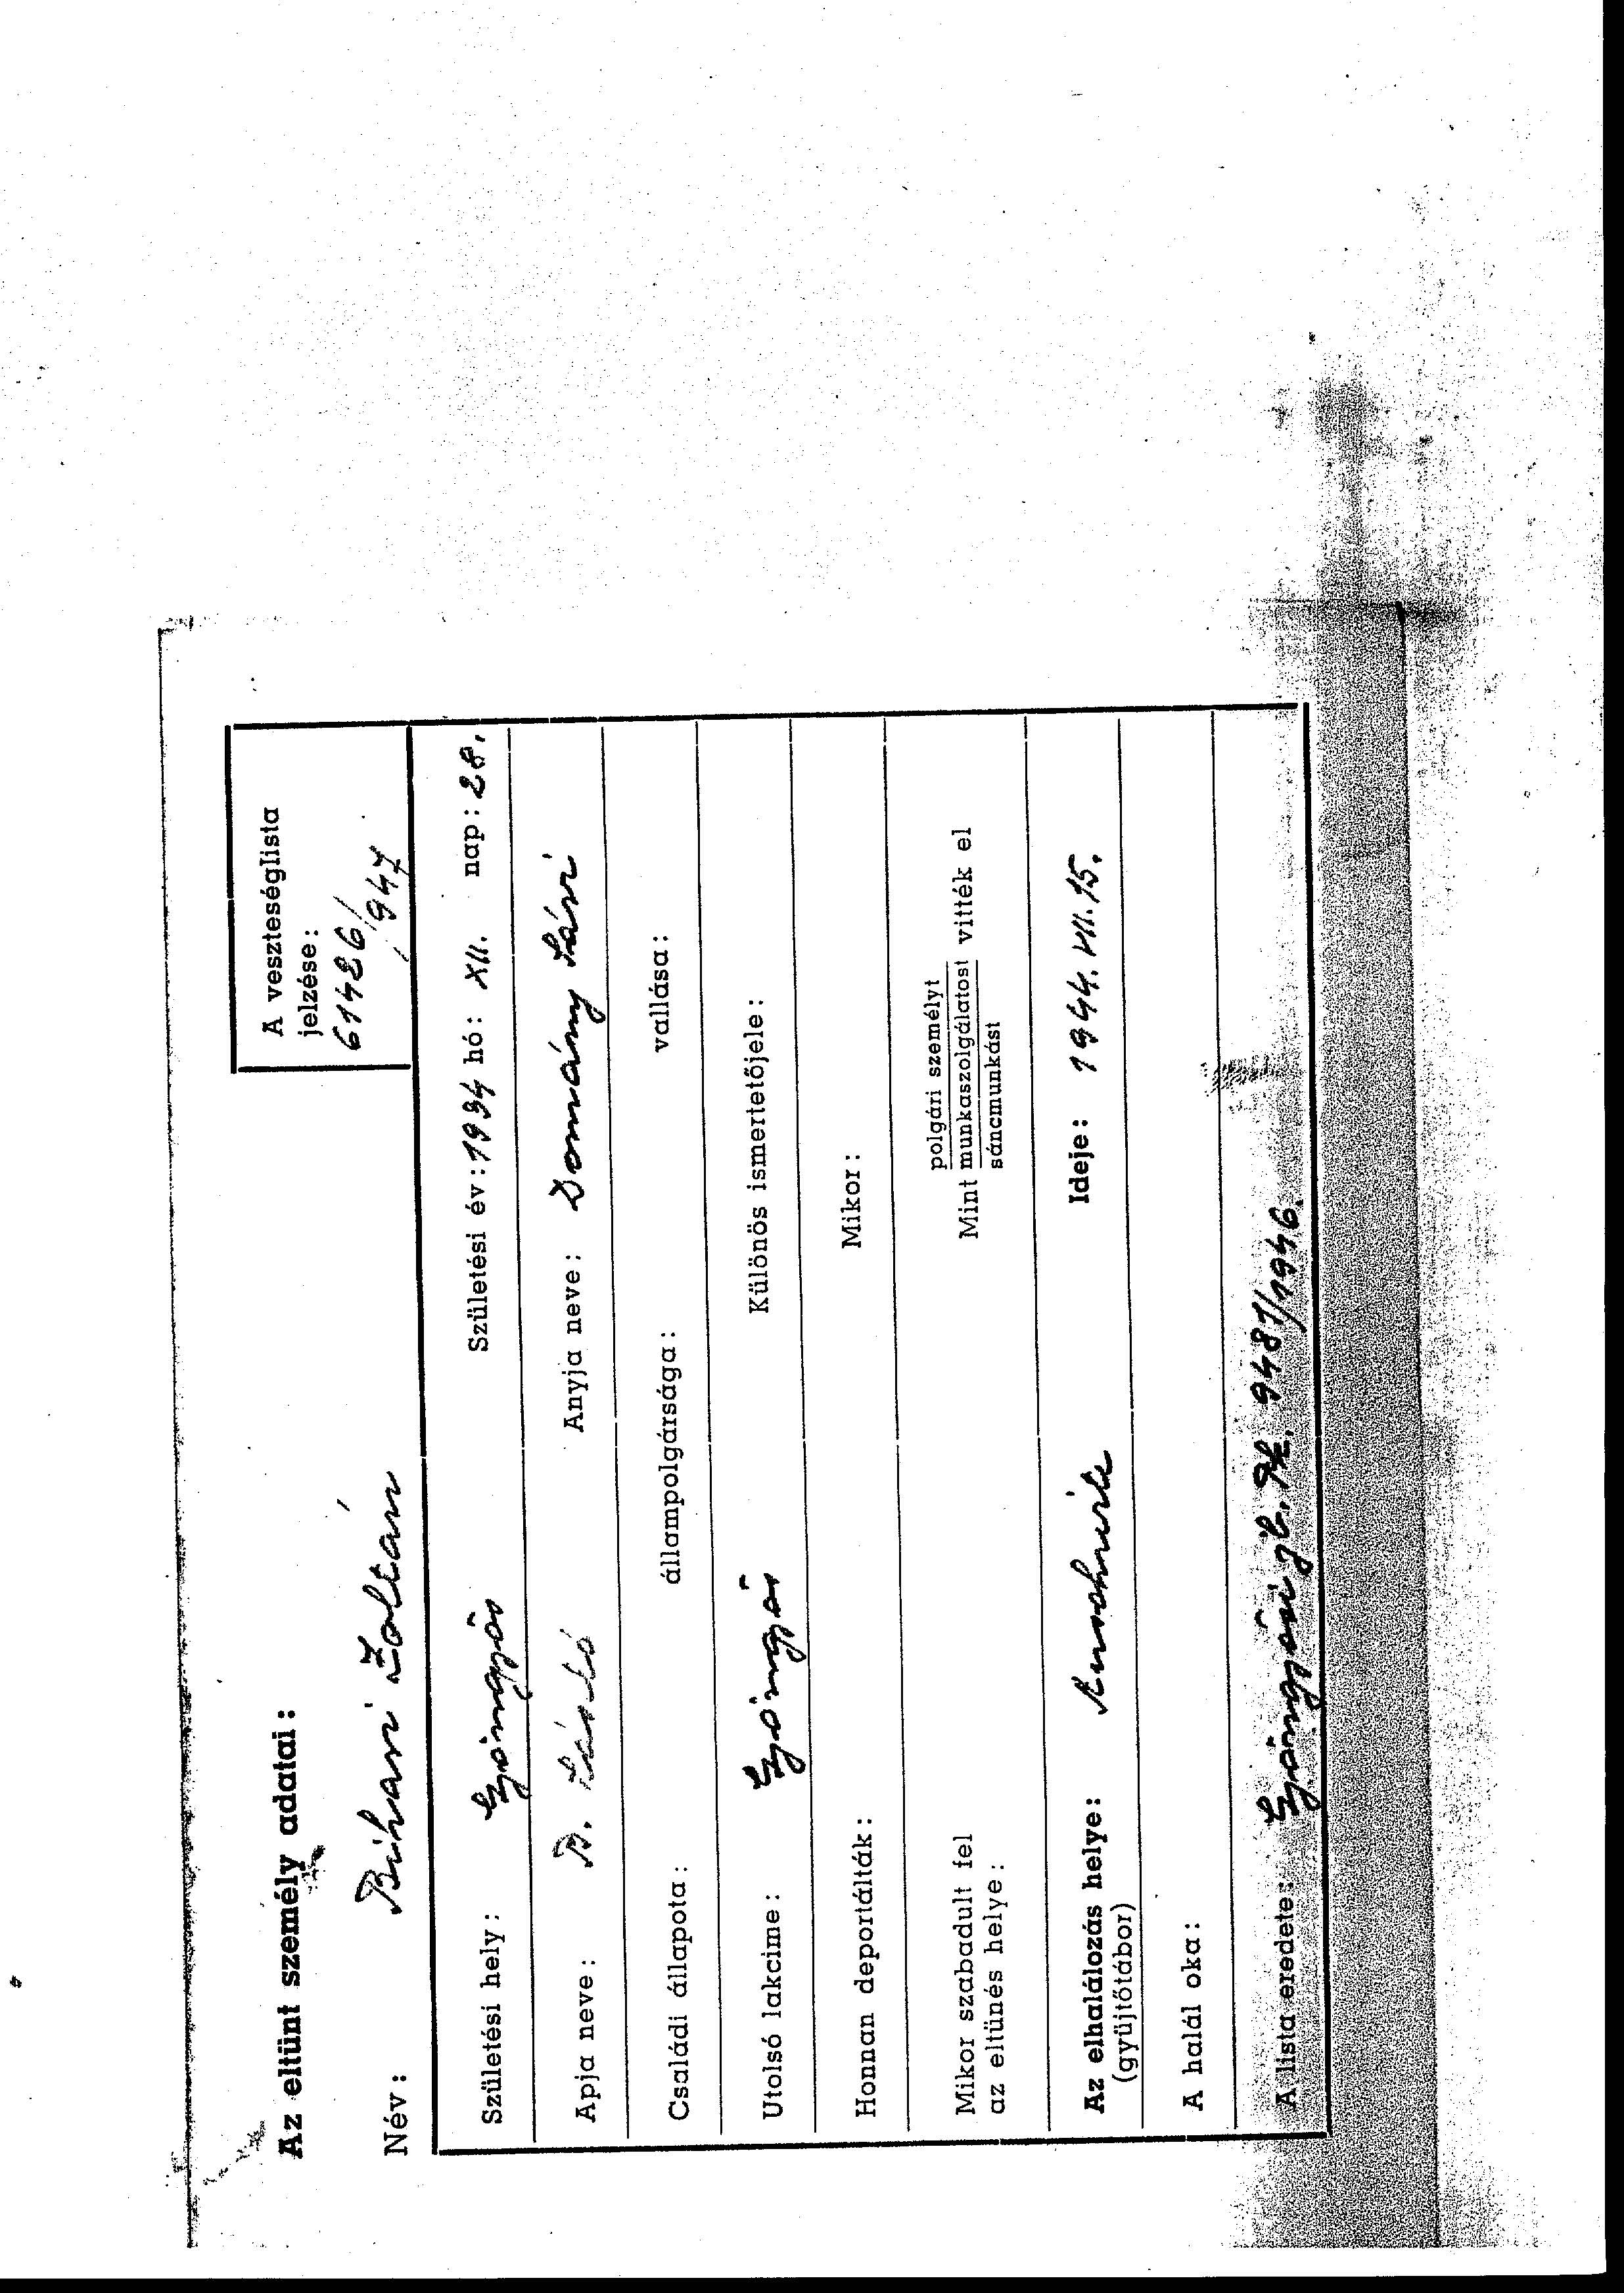 Az eltünt személy adatai:
A veszteséglista
jelzése:
61426/
947
Név: Bihari Zoltán
Születési hely: Gyöngyös Születési év: 1934 hó: XII. nap: 28.
Apja neve: B. László Anyja neve: Domány Sári
Családi állapota: állampolgársága: vallása:
Utolsó lakcime: Gyöngyös Különös ismertetőjele:
Honnan deportálták: Mikor:
Mikor szabadult fel
az eltünés helye:
polgári személyt
Mint munkaszolgálatost vitték el
sáncmunkást
Az elhalálozás helye: Ideje: 1944. VII. 15.
(gyüjtőtábor)
A halál oka:
A lista eredete: Gyöngyösi jb. Pk. 9481/1946.